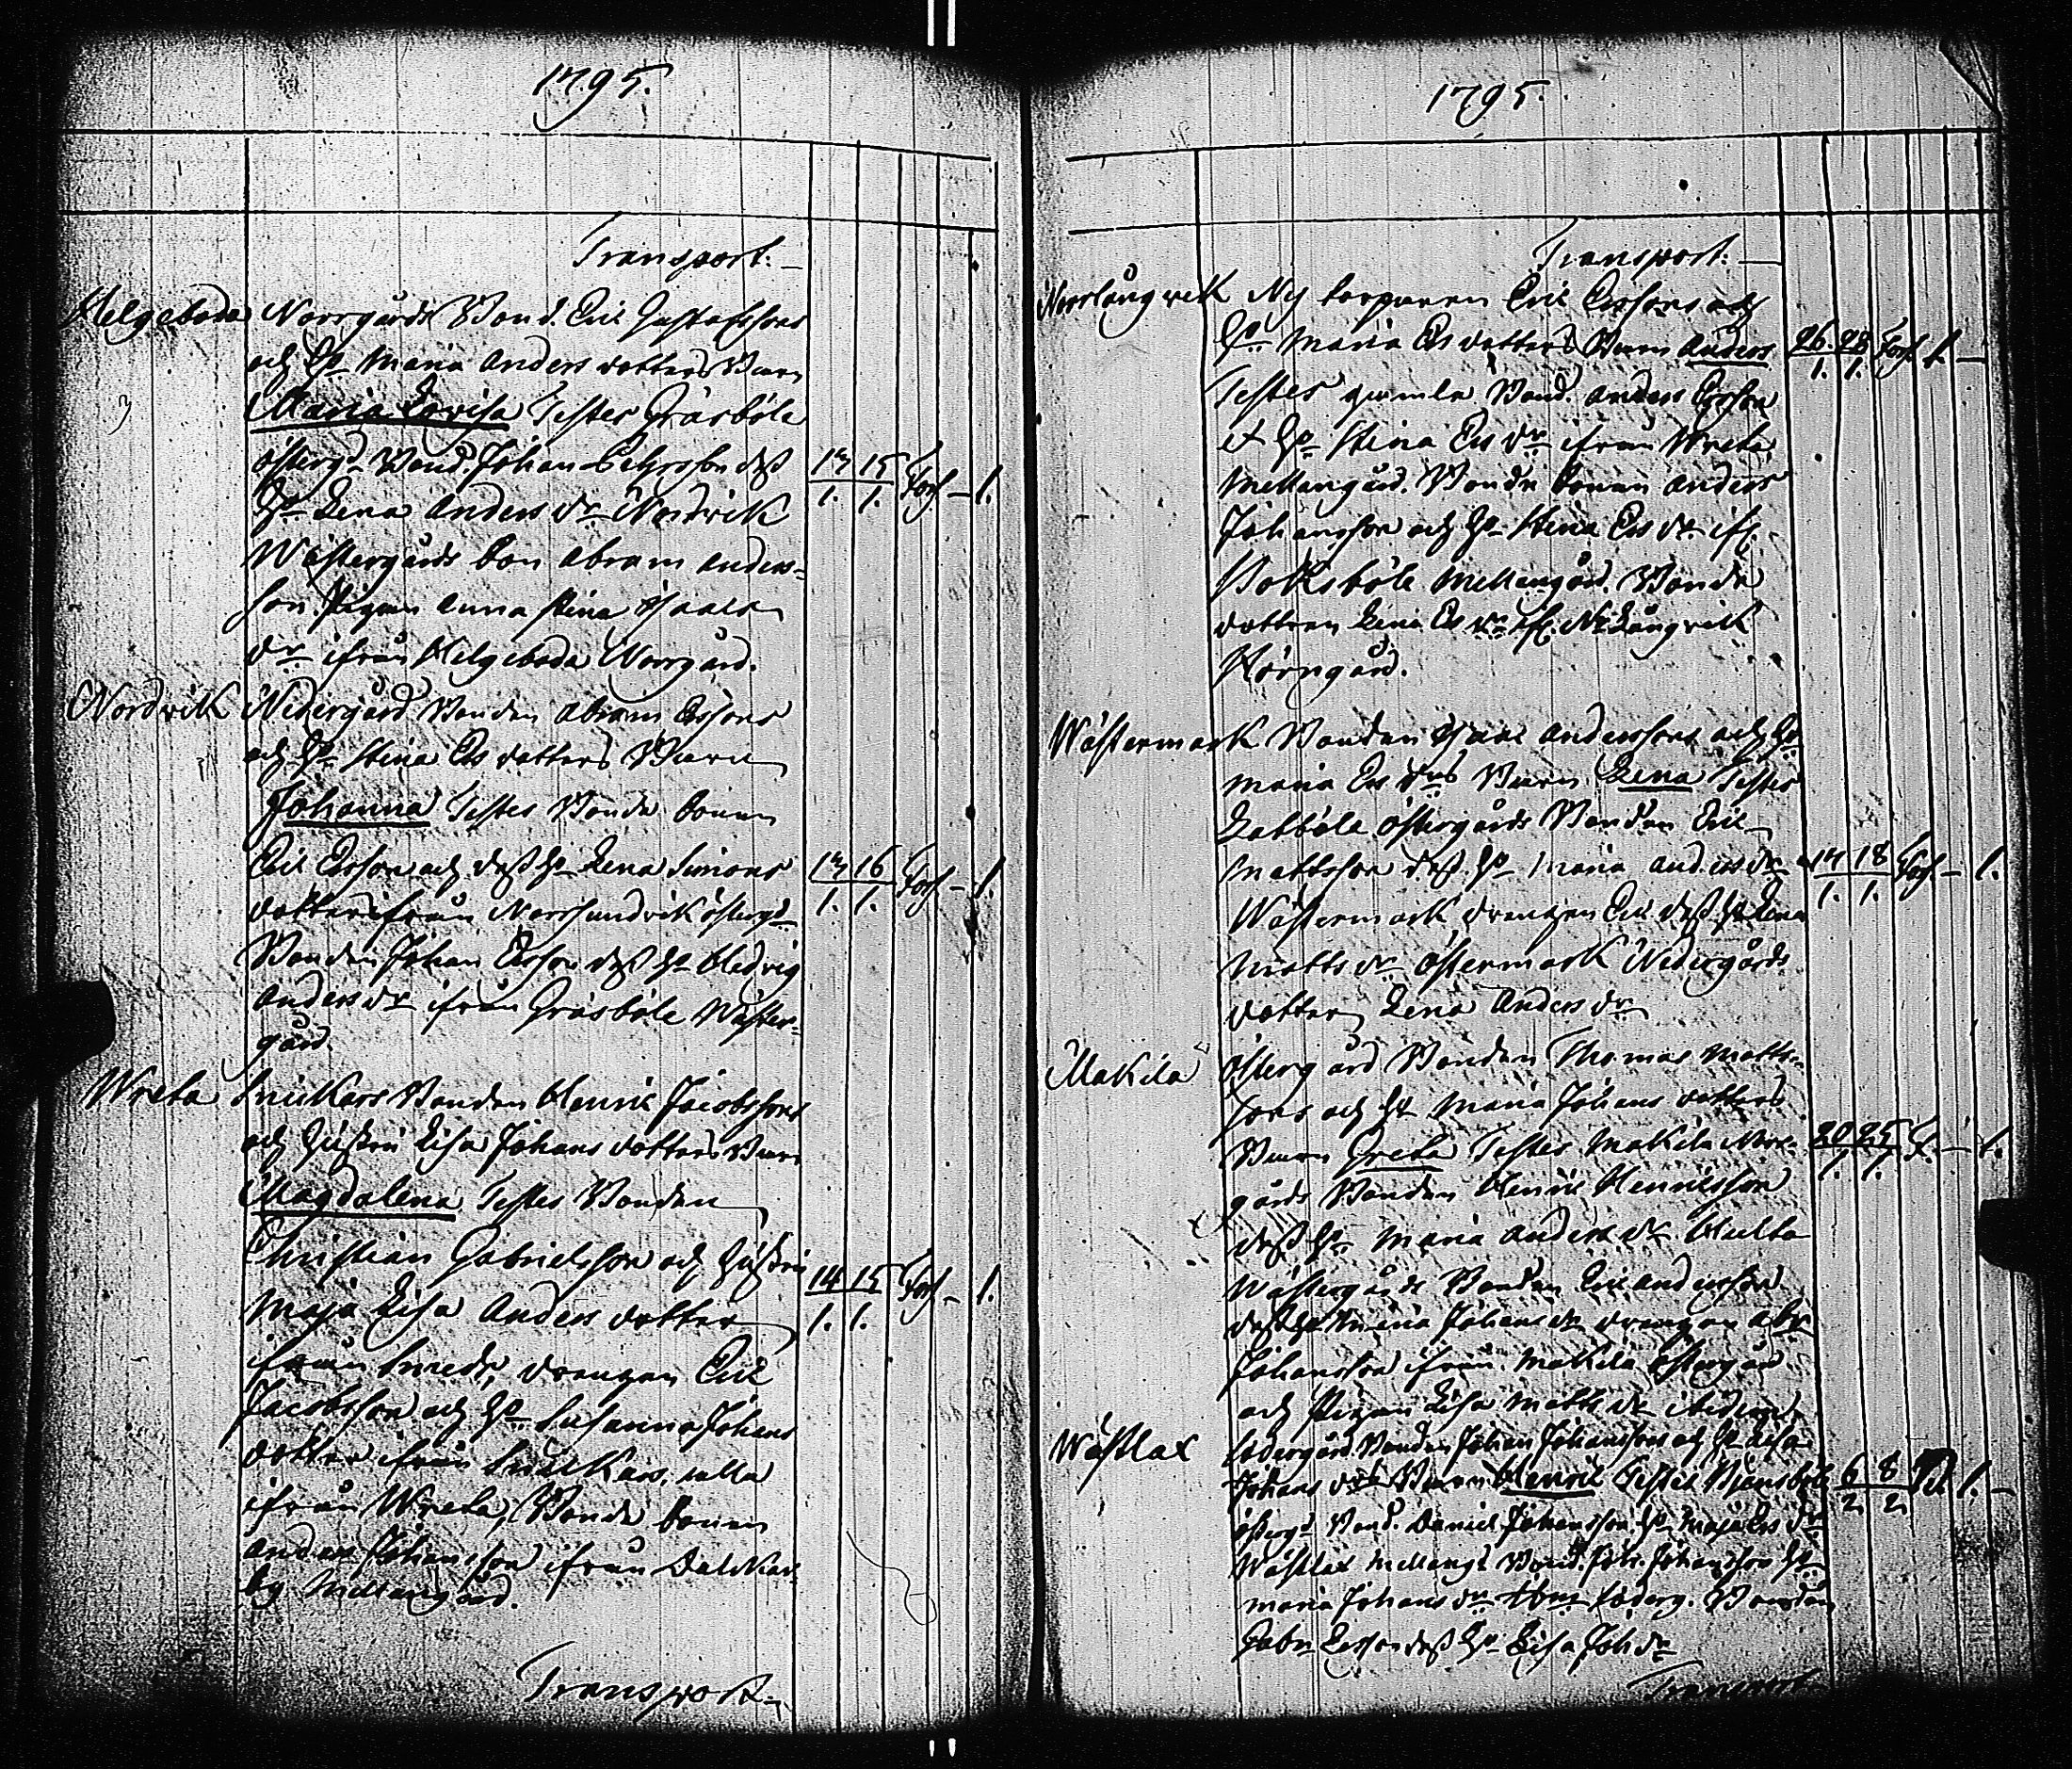 1795.
Transport.
Helgeboda Norrgårds Bond. Eric Gustafssons
och H:o Maria Anders dotters Barn
Maria Lovisa Testes Gräsböle
Österg:d Bond. Johan Ersson dess
H:o Lena Anders d:r Nordvik
Westergårds Son Abram Anders-
son Pigan Anna Stina Isaacs
d:r ifrån Helgeboda Norrgård.
13/1. 15/1. Torp. – 1.
Nordvik Nedergård Bonden Abram Erssons
och H:o Stina Ers dotters Barn
Johanna Testes Bonde Sonen
Eric Ersson och dess H:o Lena Simons
dotter ifrån Norrsundvik Österg:d
Bonden Johan Ersson dess H:o Hedvig
Anders d:r ifrån Gräsböle Wäster-
gård.
13/1. 16/1. – 1.
Wreta Snickars Bonden Henric Jacobssons
och Hustru Lisa Johans dotters Barn
Magdalena Testes Bonden
Christian Gabrielsson och Hustru
Maja Lisa Anders dotter
ifrån Smeds, drengen Eric
Jacobsson och H:o Susanna Johans
dotter ifrån Snickars, alla
ifrån Wreta, Bonde Sonen
Anders Johansson ifrån Dalskar-
by Mellangård.
14/1. 15/1. – 1.
Transport
1795.
Transport.
Norrlångvik Ny torparen Eric Erssons och
H:o Maria Ers dotters Barn Anders
26/1. 28/1. 1. –
Testes gamla Bond. Anders Ersson
et H:o Stina Ers d:r ifrån Wreta
Mellangård. Bonde Sonen Anders
Johansson och H:o Stina Ers d:r if.
Böksböle Mellangård. Bonde
dottren Lena Ers d:r if. N:Långvik
Hörngård.
Wästermark Bonden Isaac Anderssons och H:o
Maria Ers d:rs Barn Lena Testes
Labböle Östergårds Bonden Eric
Mattsson dess H:o Maria Anders d:r
17/1. 18/1. – 1.
Wästermark drengen Eric dess H:o Lena
Matts d:r Östermark Nedergårds
dotter Lena Anders d:r
Makila Östergård Bonden Thomas Matts-
sons och H:o Maria Johans dotters
Barn Greta Testes Makila Norr-
20/1. 25/1. – 1.
gårds Bonden Henric Henricsson
dess H:o Maria Anders d:r Hulta
Wästergårds Bonden Eric Andersson
dess H:o Johans d:r drengen Abr
Johansson ifrån Makila Östergård
och Pigan Lisa Matts d:r ibidem.
Wästlax Södergård Bonden Johan Johanssons och H:o Lisa
Johans d:rs Barn Henric Testes Bjensböle
6/2 8/2 1. –
Österg:d Bond. Daniel Johansson H:o Maja Ers d:r
Wästlax Mellang:d Bond. Joh. Johansson H:o
Maria Johans d:r Söderg. Bonden
Gabr Ersson dess H:o Lisa Joh d:r
Transport